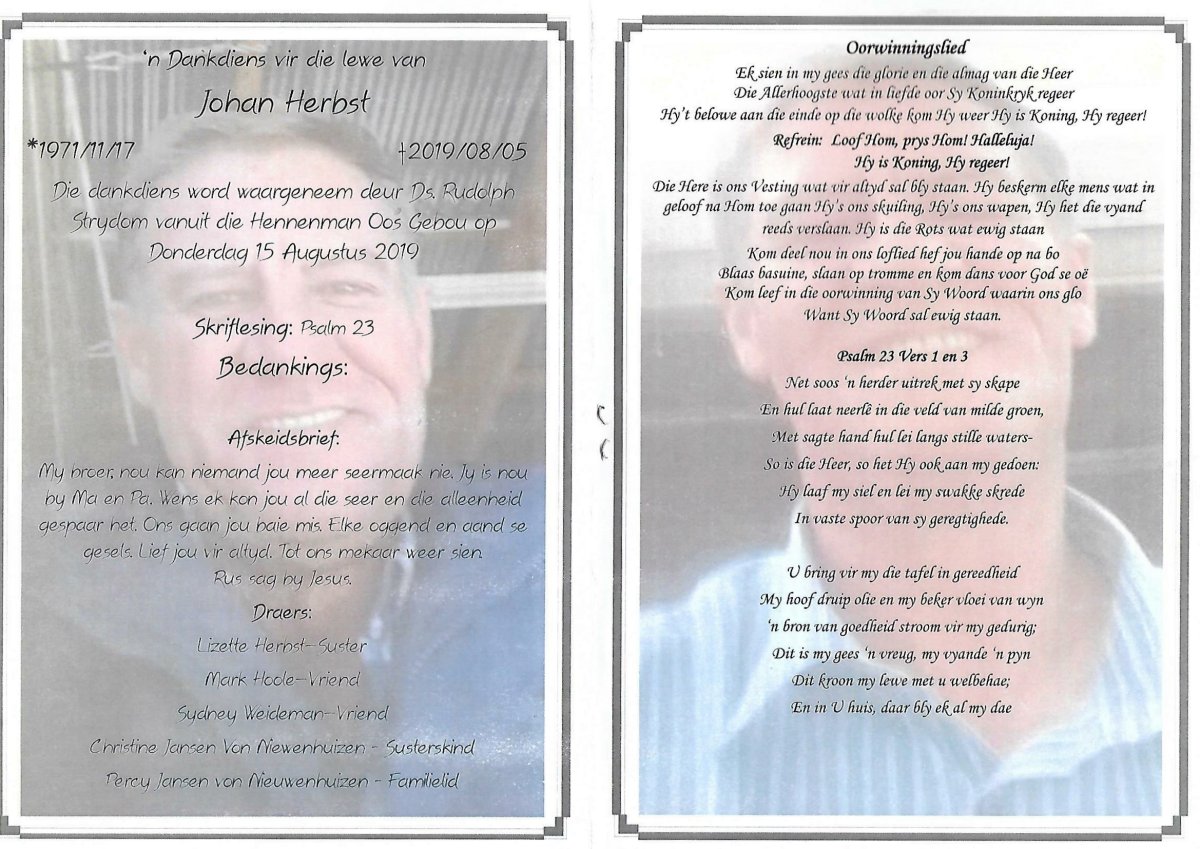 ‘n Dankdiens vir die lewe van
Johan Herbst
*1971/11/17 †2019/08/05
Die dankdiens word waargeneem deur Ds. Rudolph
Strydom vanuit die Hennenman Oos Gebou op
Donderdag 15 Augustus 2019
Skriflesing: Psalm 23
Bedankings:
Afskeidsbrief:
My broer, nou kan niemand jou meer seermaak nie. Jy is nou
by Ma en Pa. Wens ek kon jou al die seer en die alleenheid
gespaar het. Ons gaan jou baie mis. Elke oggend en aand se
gesels. Lief jou vir altyd. Tot ons mekaar weer sien.
Rus sag by Jesus.
Draers:
Lizette Herbst–Suster
Mark Hoole–Vriend
Sydney Weideman–Vriend
Christine Jansen Von Niewenhuizen - Susterskind
Percy Jansen von Nieuwenhuizen - Familielid
Oorwinningslied
Ek sien in my gees die glorie en die almag van die Heer
Die Allerhoogste wat in liefde oor Sy Koninkryk regeer
Hy’t belowe aan die einde op die wolke kom Hy weer Hy is Koning, Hy regeer!
Refrein: Loof Hom, prys Hom! Halleluja!
Hy is Koning, Hy regeer!
Die Here is ons Vesting wat vir altyd sal bly staan. Hy beskerm elke mens wat in
geloof na Hom toe gaan Hy’s ons skuiling, Hy’s ons wapen, Hy het die vyand
reeds verslaan. Hy is die Rots wat ewig staan
Kom deel nou in ons loflied hef jou hande op na bo
Blaas basuine, slaan op tromme en kom dans voor God se oë
Kom leef in die oorwinning van Sy Woord waarin ons glo
Want Sy Woord sal ewig staan.
Psalm 23 Vers 1 en 3
Net soos ‘n herder uitrek met sy skape
En hul laat neerlê in die veld van milde groen,
Met sagte hand hul lei langs stille waters-
So is die Heer, so het Hy ook aan my gedoen:
Hy laaf my siel en lei my swakke skrede
In vaste spoor van sy geregtighede.
U bring vir my die tafel in gereedheid
My hoof druip olie en my beker vloei van wyn
‘n bron van goedheid stroom vir my gedurig;
Dit is my gees ‘n vreug, my vyande ‘n pyn
Dit kroon my lewe met u welbehae;
En in U huis, daar bly ek al my dae